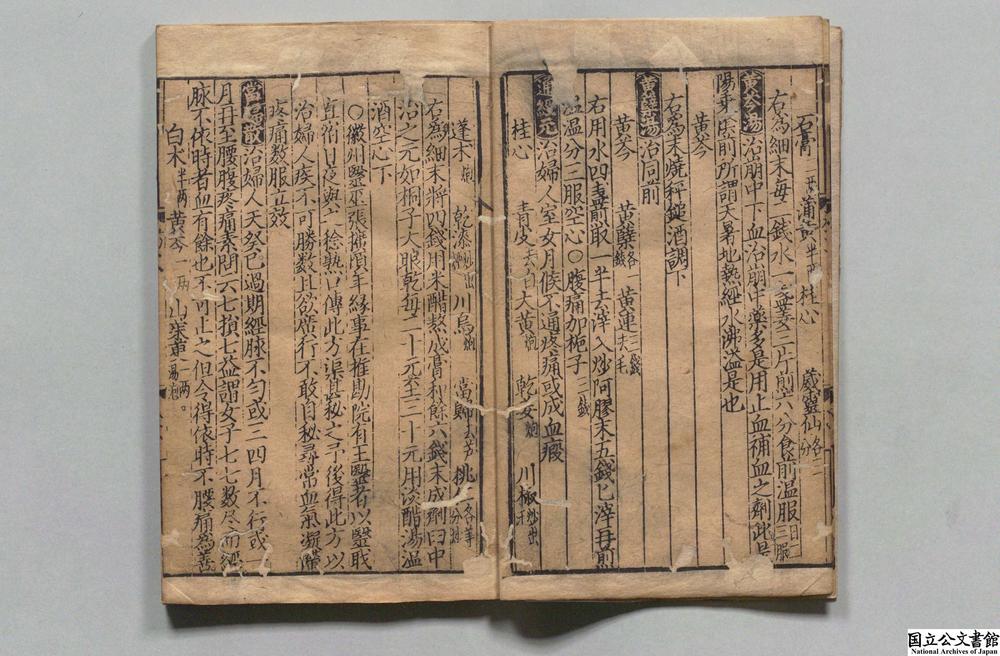 石膏一分 蒲黃半兩 桂心 葳靈仙各二分
右為細末每一錢水一盞姜三片煎六分食前溫服日三服
黃芩湯 治崩中下血治崩中藥多是用止血補血之劑此是
陽乘陰前所謂天暑地熱經水沸溢是也
黃芩
右為末燒秤錘酒調下
黃蘗湯 治同前
黃芩 黃蘗各錢 黃連三錢去毛
右用水四盞煎取一半去滓入炒阿膠末五錢匕滓再煎
溫分三服空心○腹痛加梔子三錢
通經元 治婦人室女月候不通疼痛或成血瘕
桂心 青皮去白 大黃炮 乾姜炮 川椒炒出汗
蓬木炮 乾漆炒出煙 川烏炮 當歸去芦 桃仁各等分
右為細末將四錢用米醋熬成膏和餘六錢末成劑臼中
治之元如桐子大眼乾每二十元至三十元用淡醋湯溫
酒空心下
○徽州醫巫張擴頃年緣事在推勘院有王醫者以醫職
直宿日夜與之稔熟口傳此方渠甚秘之予後得此方以
治婦人疾不可勝數且欲廣行不敢自秘尋常血氣凝滯
疼痛數服立效
當歸散 治婦人天癸已過期經脉不勻或三四月不行或一
月再至腰腹疼痛素問云七損七益謂女子七七數尽而經
脉不依時者血有餘也不可止之但令得依時不腰痛為善
白木半兩 黃芩一兩 山茱萸一兩湯泡
国立公文書館
National Archives of Japan